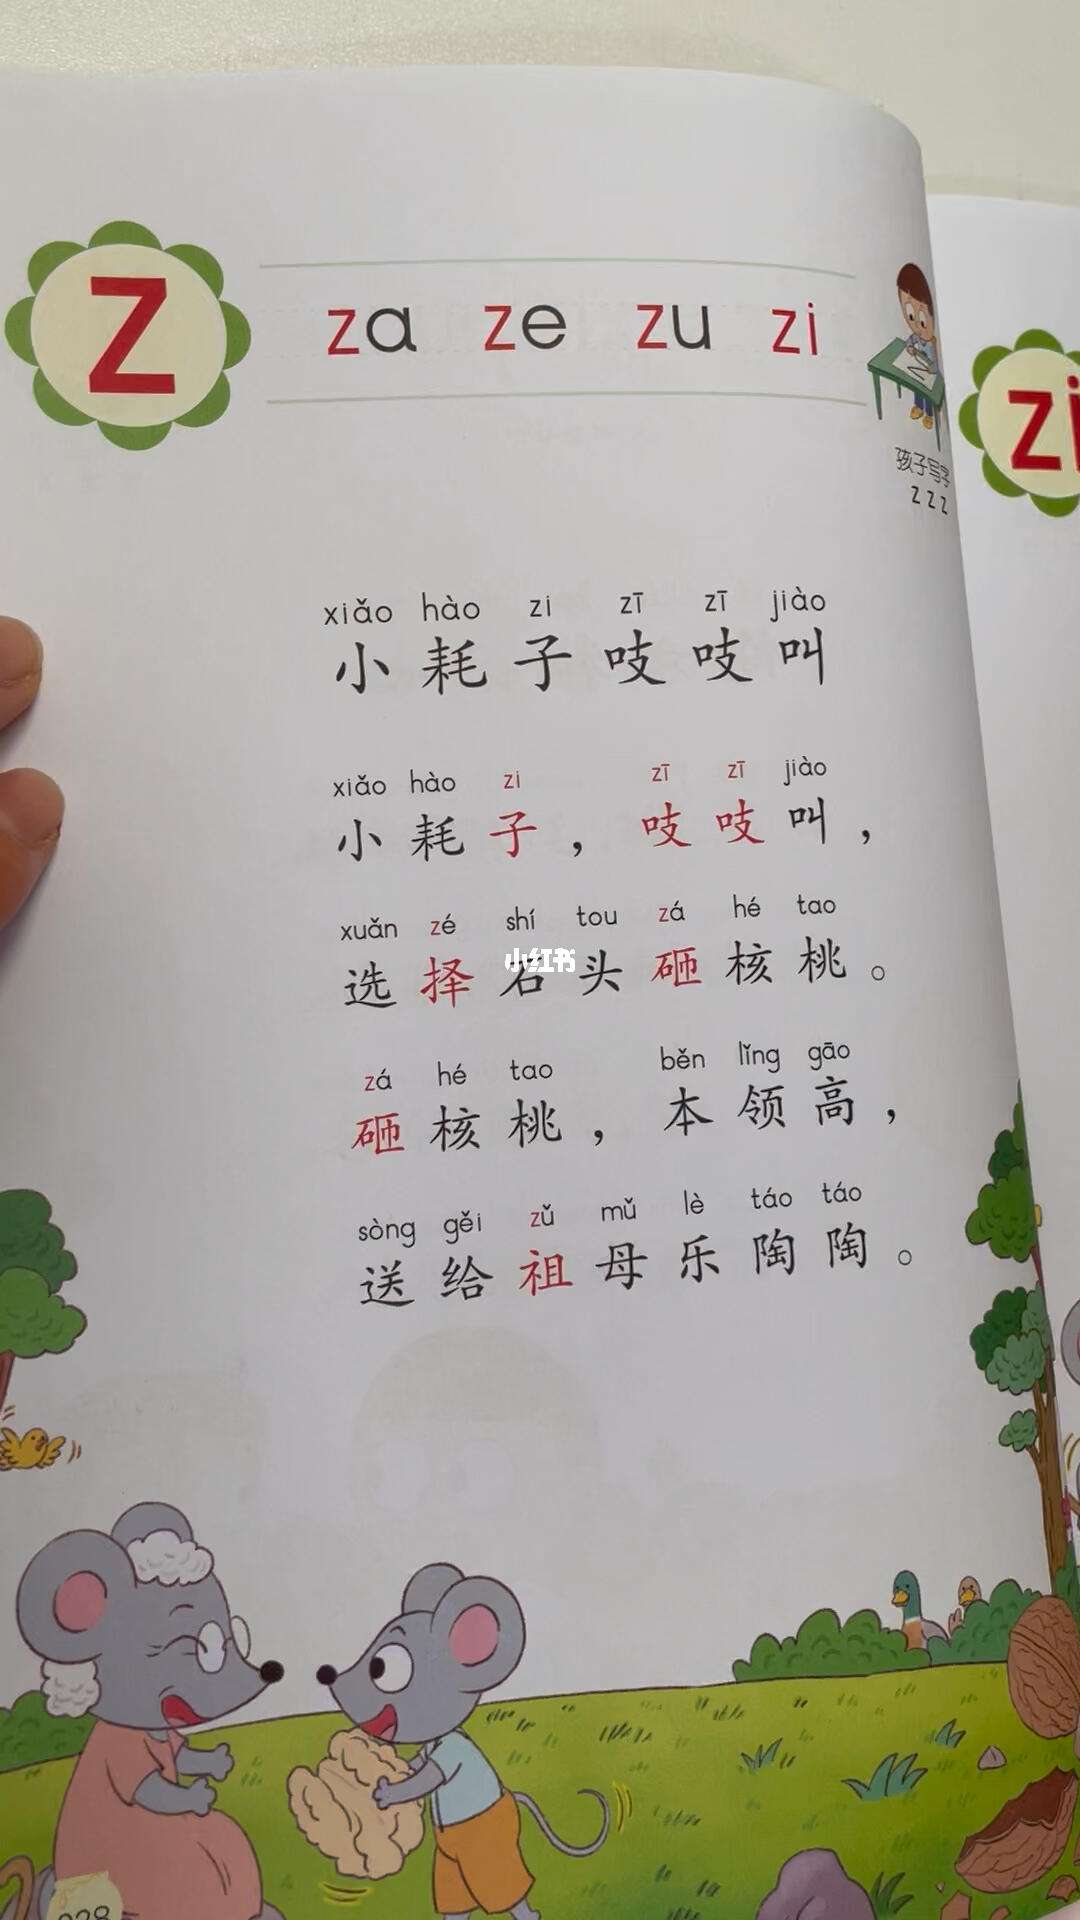 z
za ze zu zi
孩子写字
z z z
zi
xiǎo hào zi zī zī jiào
小耗子吱吱叫
xiǎo hào zi zī zī jiào
小耗子，吱吱叫，
xuǎn zé shí tou zá hé tao
选择石头砸核桃。
小红书
zá hé tao běn lǐng gāo
砸核桃，本领高，
sòng gěi zǔ mǔ lè táo táo
送给祖母乐陶陶。